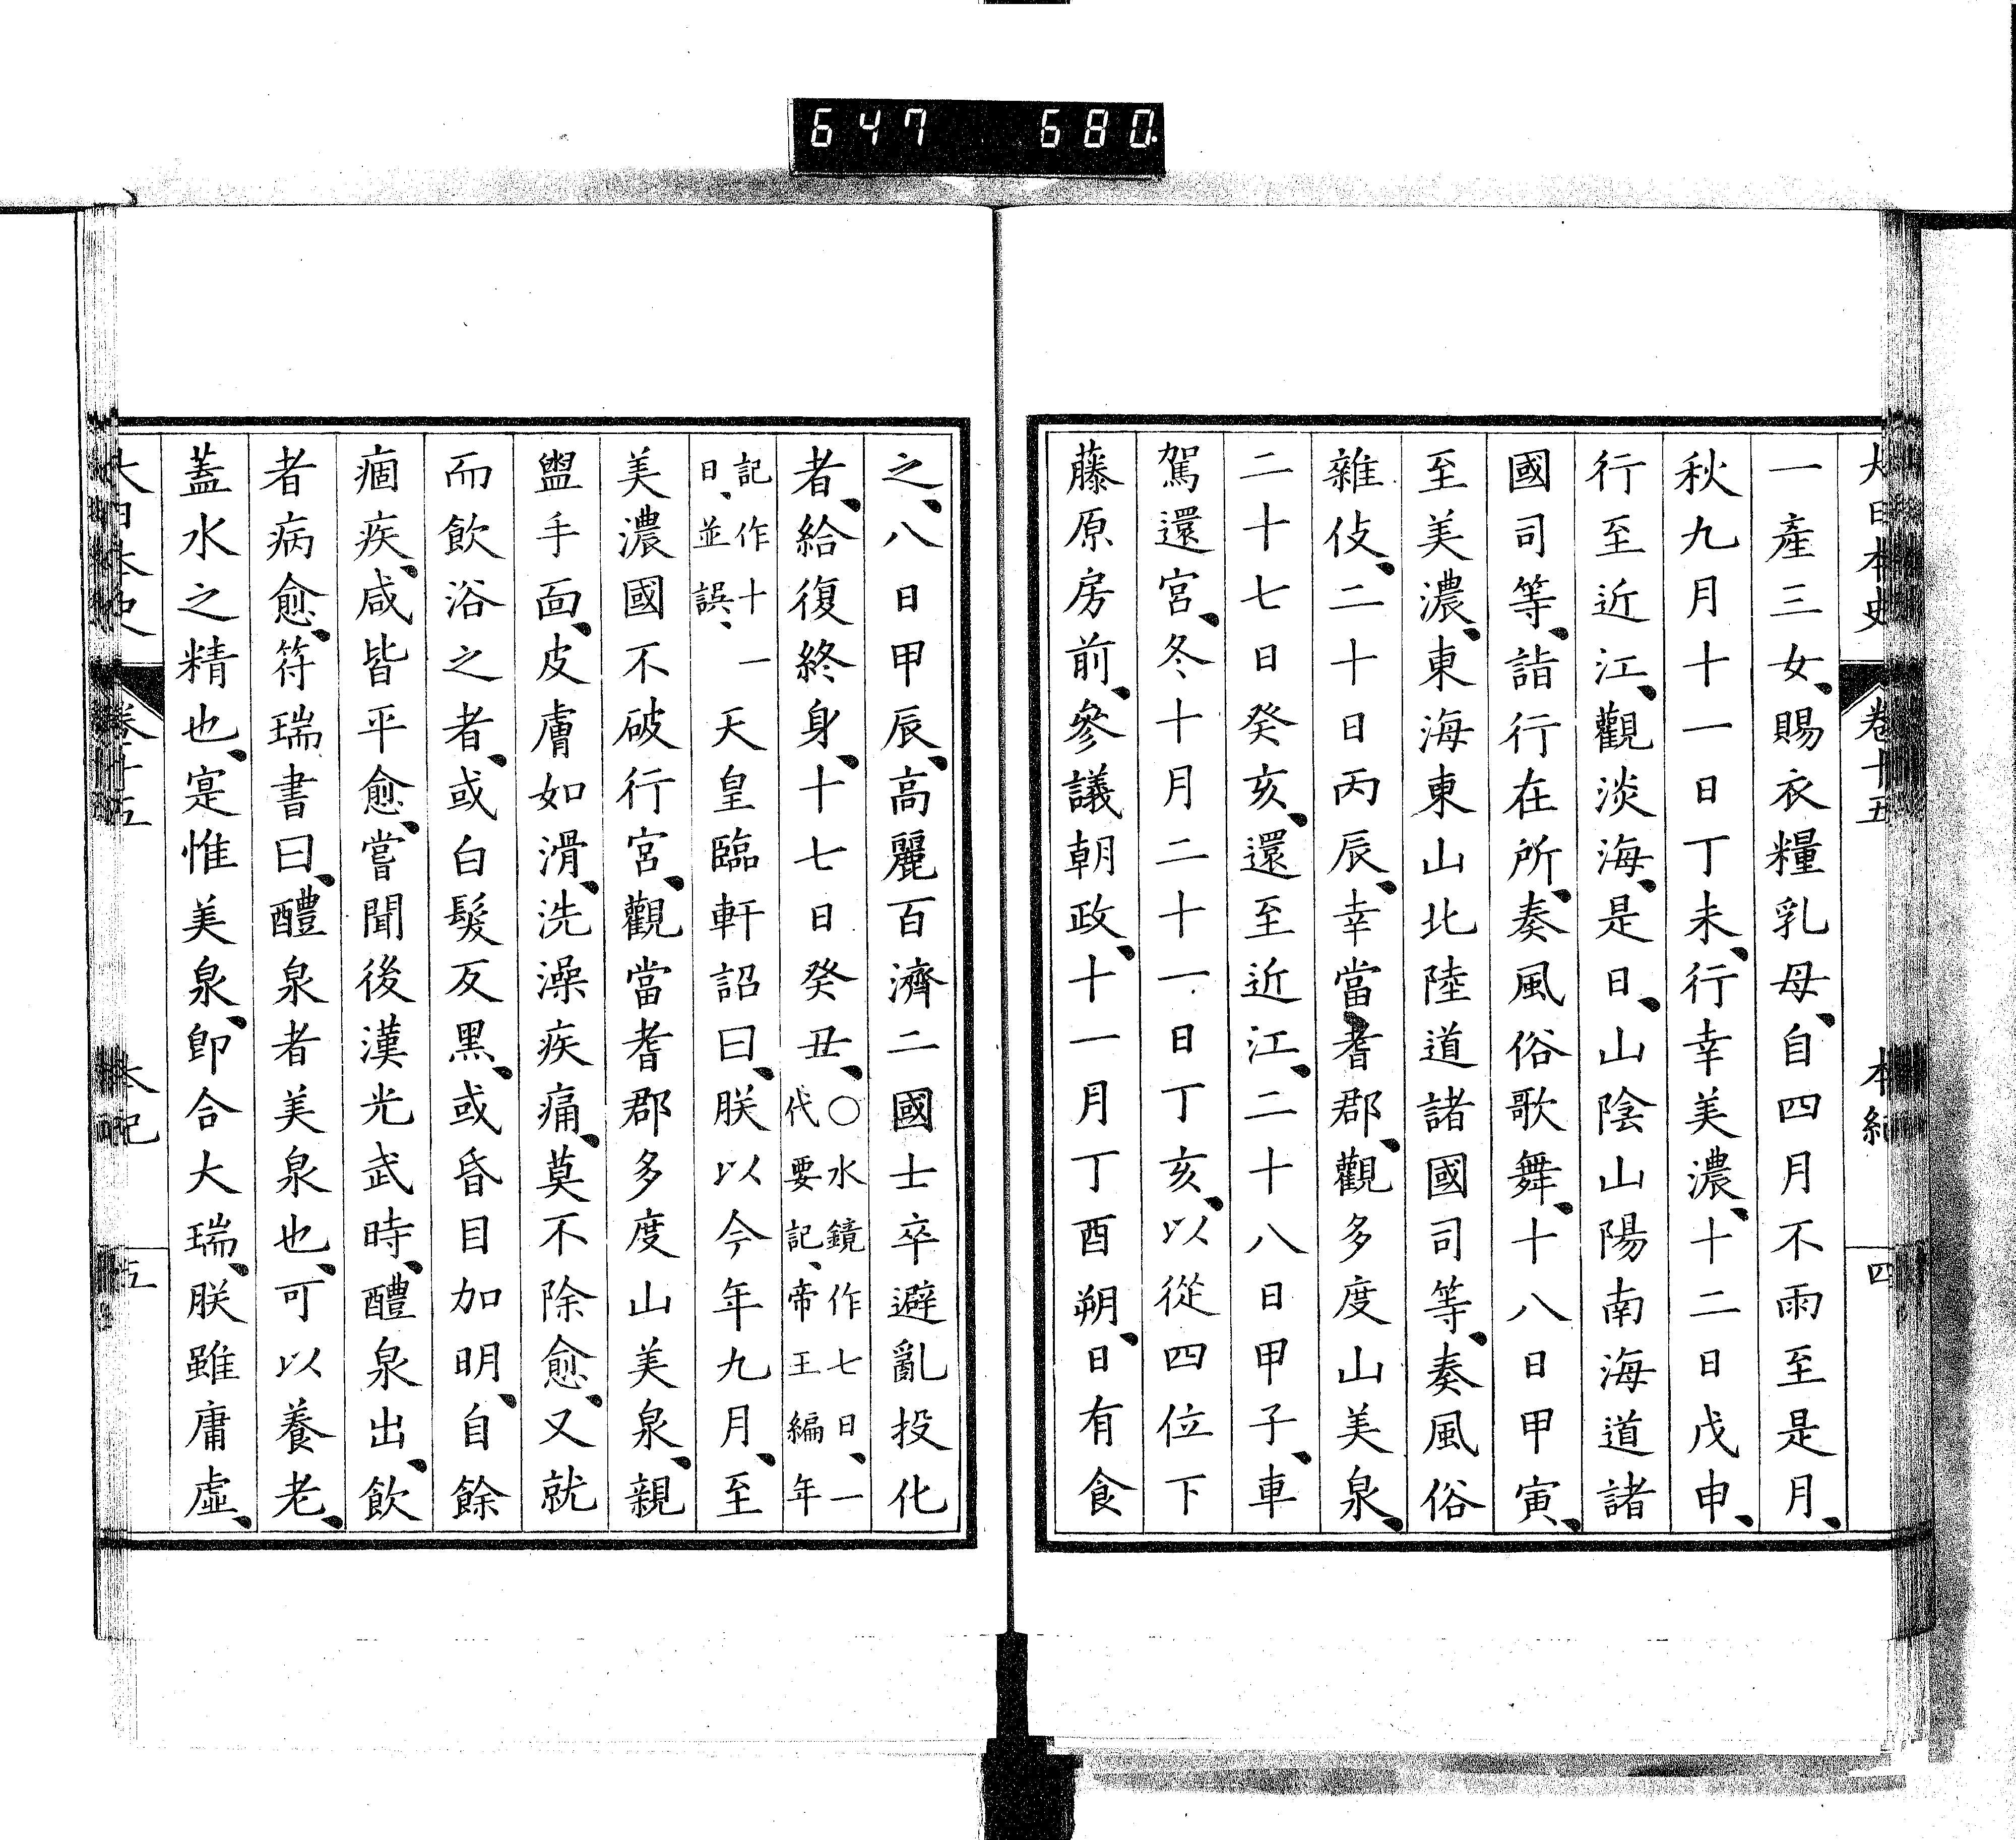 647 680
大日本史 卷十五 本紀 四
一產三女、賜衣糧乳母、自四月不雨至是月、
秋九月十一日丁未、行幸美濃、十二日戊申、
行至近江、觀淡海、是日、山陰山陽南海道諸
國司等、詣行在所、奏風俗歌舞、十八日甲寅、
至美濃、東海東山北陸道諸國司等、奏風俗
雜伎、二十日丙辰、幸當耆郡、觀多度山美泉、
二十七日癸亥、還至近江、二十八日甲子、車
駕還宮、冬十月二十一日丁亥、以從四位下
藤原房前、參議朝政、十一月丁酉朔、日有食
之、八日甲辰、高麗百濟二國士卒避亂投化
者、給復終身、十七日癸丑、○水鏡作七日、一
代要記、帝王編年
記作十一
日、並誤、
天皇臨軒詔曰、朕以今年九月、至
美濃國不破行宮、觀當耆郡多度山美泉、親
盥手面、皮膚如滑、洗澡疾痛、莫不除愈、又就
而飲浴之者、或白髮反黑、或昏目加明、自餘
痼疾、咸皆平愈、嘗聞後漢光武時、醴泉出、飲
者病愈、符瑞書曰、醴泉者美泉也、可以養老、
蓋水之精也、寔惟美泉、卽合大瑞、朕雖庸虛、
大日本史 卷十五 本紀 五